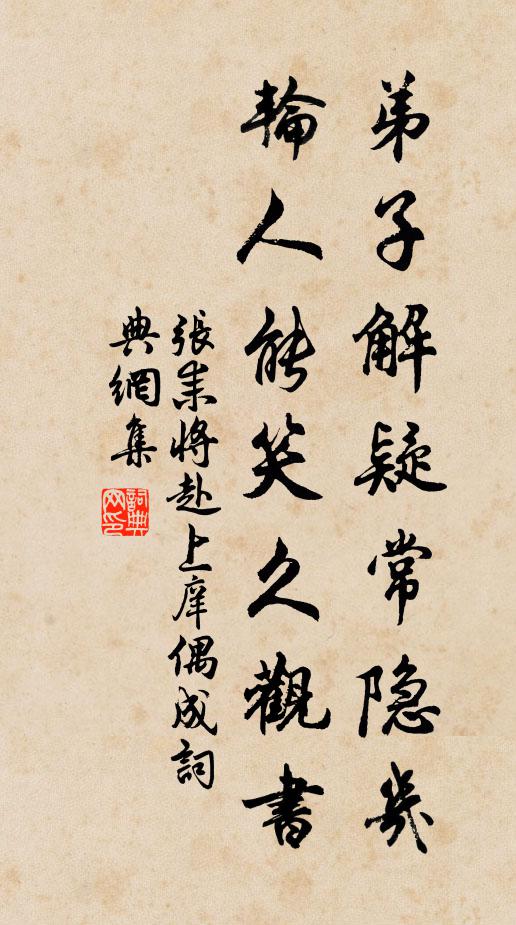 弟子解疑常隐几
輪人能笑久觀書
張耒將赴上庠偶成詞
典網集
詞典网印